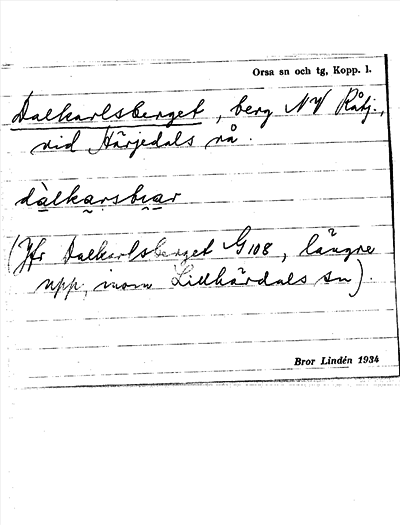 Orsa sn och tg, Kopp. l.
Dalkarlsberget, berg NV Råbj.,
vid Härjedals rå.
dàlkarsbær
(Jfr Dalkarlsberget G108, längre
upp, inom Lillhärdals sn).
Bror Lindén 1934